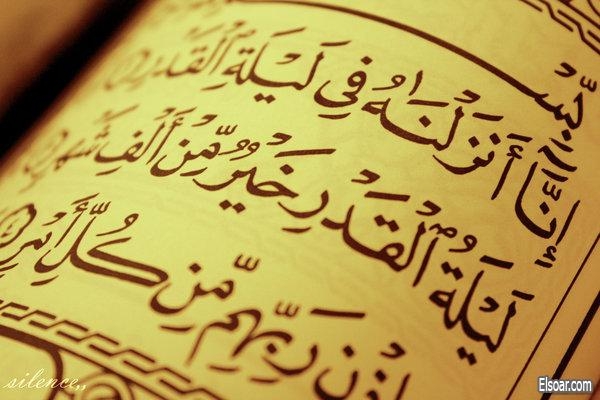 بِسْ
إِنَّآ أَنزَلْنَٰهُ فِى لَيْلَةِ ٱلْقَدْرِ
لَيْلَةُ ٱلْقَدْرِ خَيْرٌ مِّنْ أَلْفِ شَهْرٍ
رَبِّهِم مِّن كُلِّ أَمْرٍ
silence,,
Elsoar.com